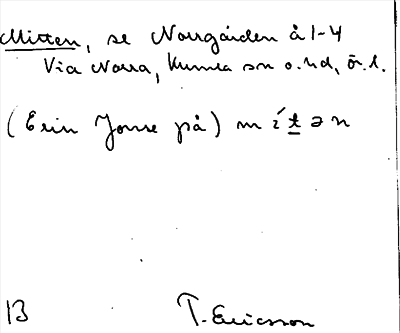 Mitten, se Norrgården å 1-4
Via Norra, Kumla sn o. hd, ör. l.
(Erin Jonse på) m í t ə n
13 T. Ericsson